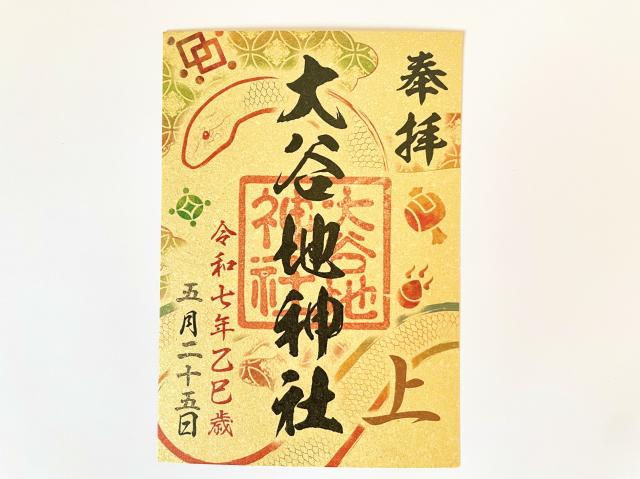 奉拝
上
大谷地神社
大谷地
神社
令和七年乙巳歳
五月二十五日